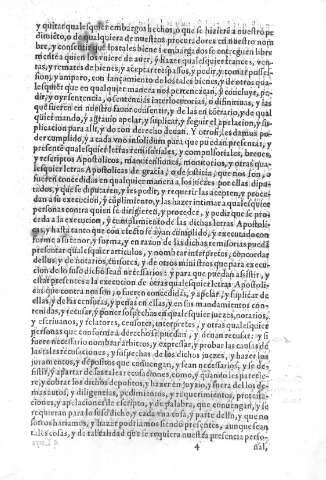 y quitar qualesquier embargos hechos, o que se hizieren a nuestro pe
dimiẽto, o de qualquiera de nuestros procuradores en nuestro nom
bre, y consentir que los tales bienes embargados se entreguen libre
mente a quien los vuiere de auer, y hazer qualesquier trances, ven-
tas, y remates de bienes, y aceptar traspassos, y pedir, y tomar posses-
sion, y amparo, con lançamiento de los tales bienes, de otros qua-
lesquier que en qualquier manera nos pertenezcan, y cōcluyr, pe-
dir, y oyr sentencia, o sentencias interlocutorias, o difinitiuas, y las
que fueren en nuestro fauor consentir, y de las en cōtrario, y de qual
quier mando, y agrauio apelar, y suplicar, y seguir el apelacion, y su-
plicacion para alli, y do con derecho deuan. Y otrosi, les damos po-
der cumplido, y a cada vno insolidum para que puedan presentar, y
presenten qualesquier letras remissoriales, y compulsoriales, breues,
y rescriptos Apostolicos, monitorios, y otras qua-
lesquier letras Apostolicas de gracia, o de justicia, que nos son, o
fueren concedidas en qualquier manera a los juezes por ellas dipu-
tados, y que se diputaren, y les pedir, y requerir las acepten, y proce-
dan a su execucion, y cūplimiento, y las hazer intimar a qualesquier
personas contra quien se dirigieren, y proceder, y pedir que se pro-
ceda a la execucion, y cumplimiento de las dichas letras Apostoli-
cas, y hasta tanto que con efecto se ayan cumplido, y executado con
forme a su tenor, y forma, y en razon de las dichas remissorias pueda
presentar qualesquier articulos, y nombrar interpretes, concordar
dellos, y de notarios, censores, y de otros ministros que para execu-
cion de lo suso dicho sean necessarios: y para que puedan assistir, y
estar presentes a la execucion de otras qualesquier letras Apostoli-
cas que contra nos son, o fueren concedidas, y apelar, y suplicar de
ellas, y de las censuras, y penas en ellas, y en sus mandamientos con-
tenidas, y recusar, y poner sospechas en qualesquier juezes, notarios,
y escriuanos, y relatores, censores, interpretes, y otras qualesquier
personas que conforme a derecho se puedan, y deuan recusar: y si
fuere necessario nombrar arbitros, y expressar, y probar las causas de
las tales recusaciones, y sospechas de los dichos juezes, y hazer los
juramentos, y depositos que conuengan, y sean necessarios, y se de-
sistir, y apartar de las tales recusaciones como, y quando les parecie-
re, y cobrar los dichos depositos, y hazer en juyzio, y fuera del los de-
mas autos, y diligencias, pedimientos, y requerimientos, protesta-
ciones, y apelaciones de escripto, y de palabra, que conuengan, y se
requieran para lo suso dicho, y cada vna cosa, y parte dello, y que
nos hariamos, y hazer podriamos siendo presentes, aunque sean
tales cosas, y de tal calidad que se requiera nuestra presencia perso-
4 nal,